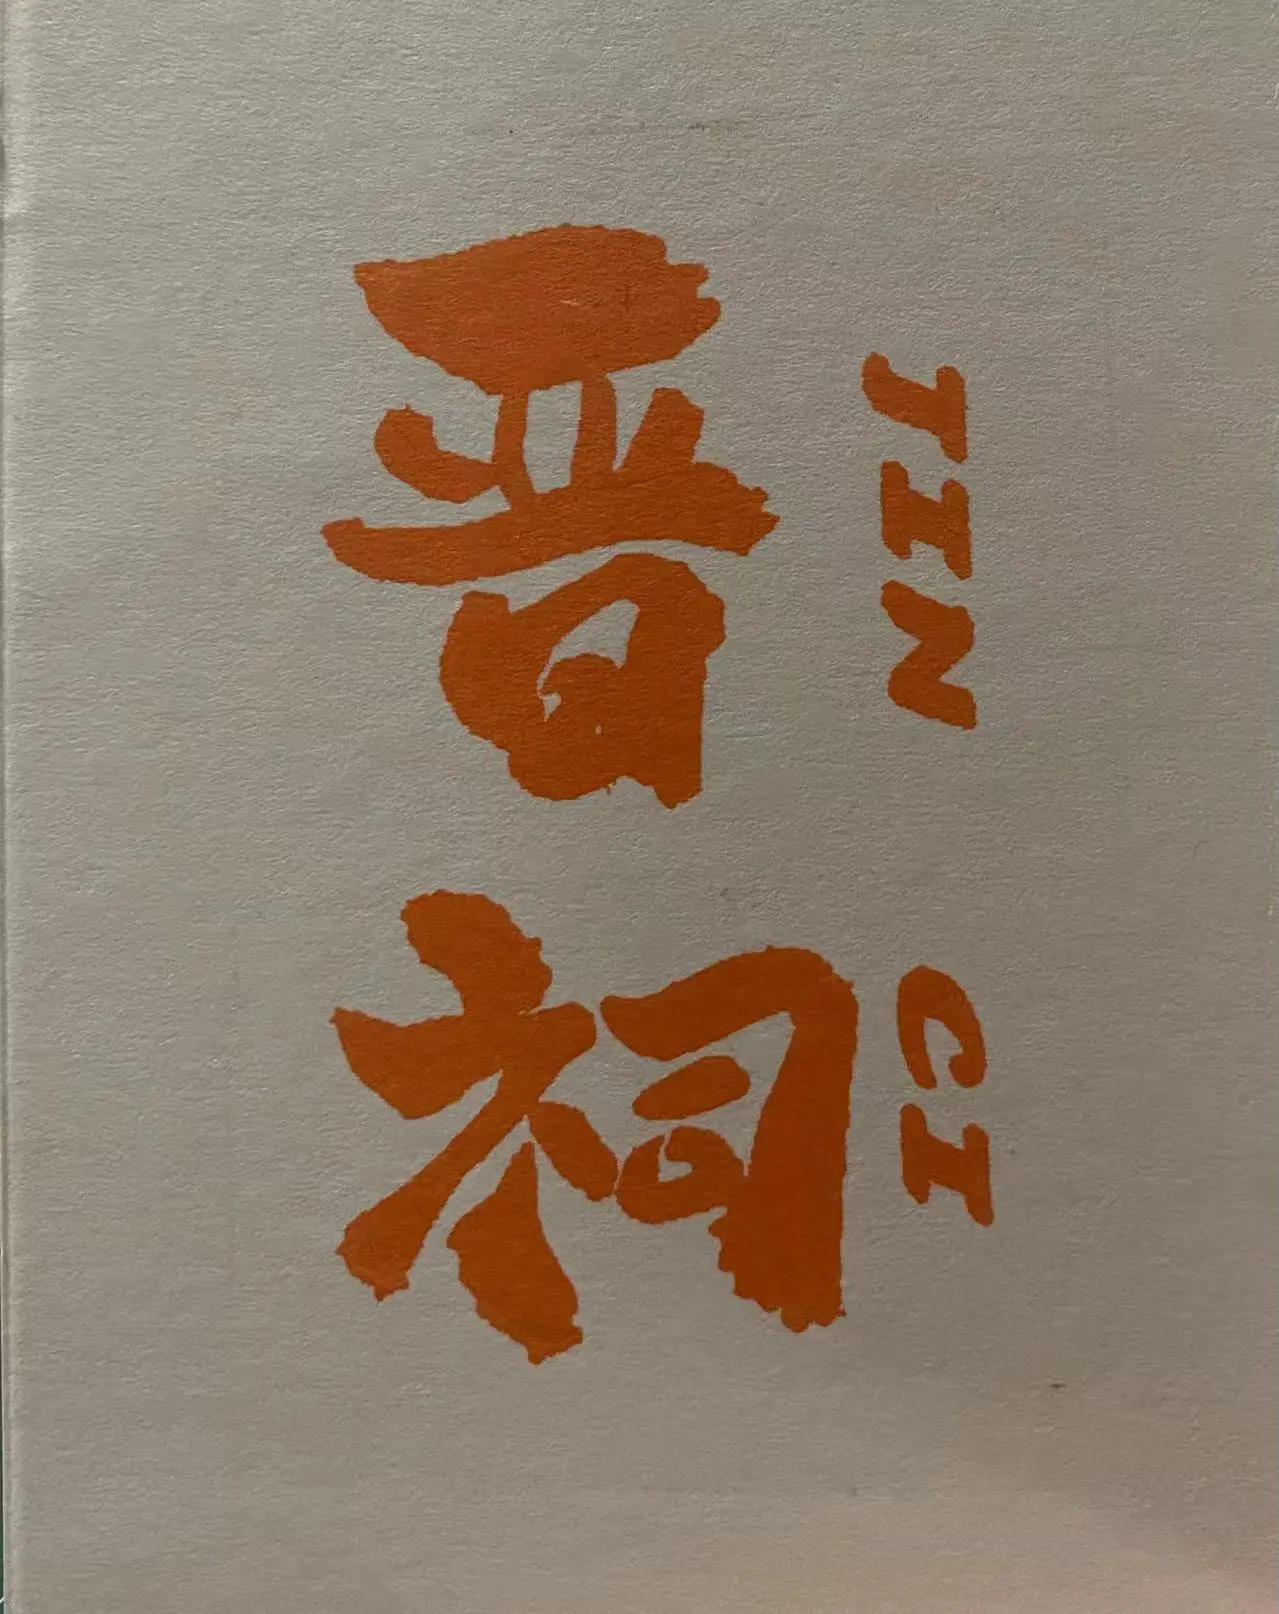 晋祠
JIN CI